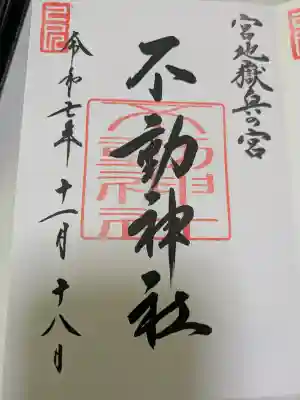 宮地嶽奥の宮
不動神社
令和七年 十一月 十八日